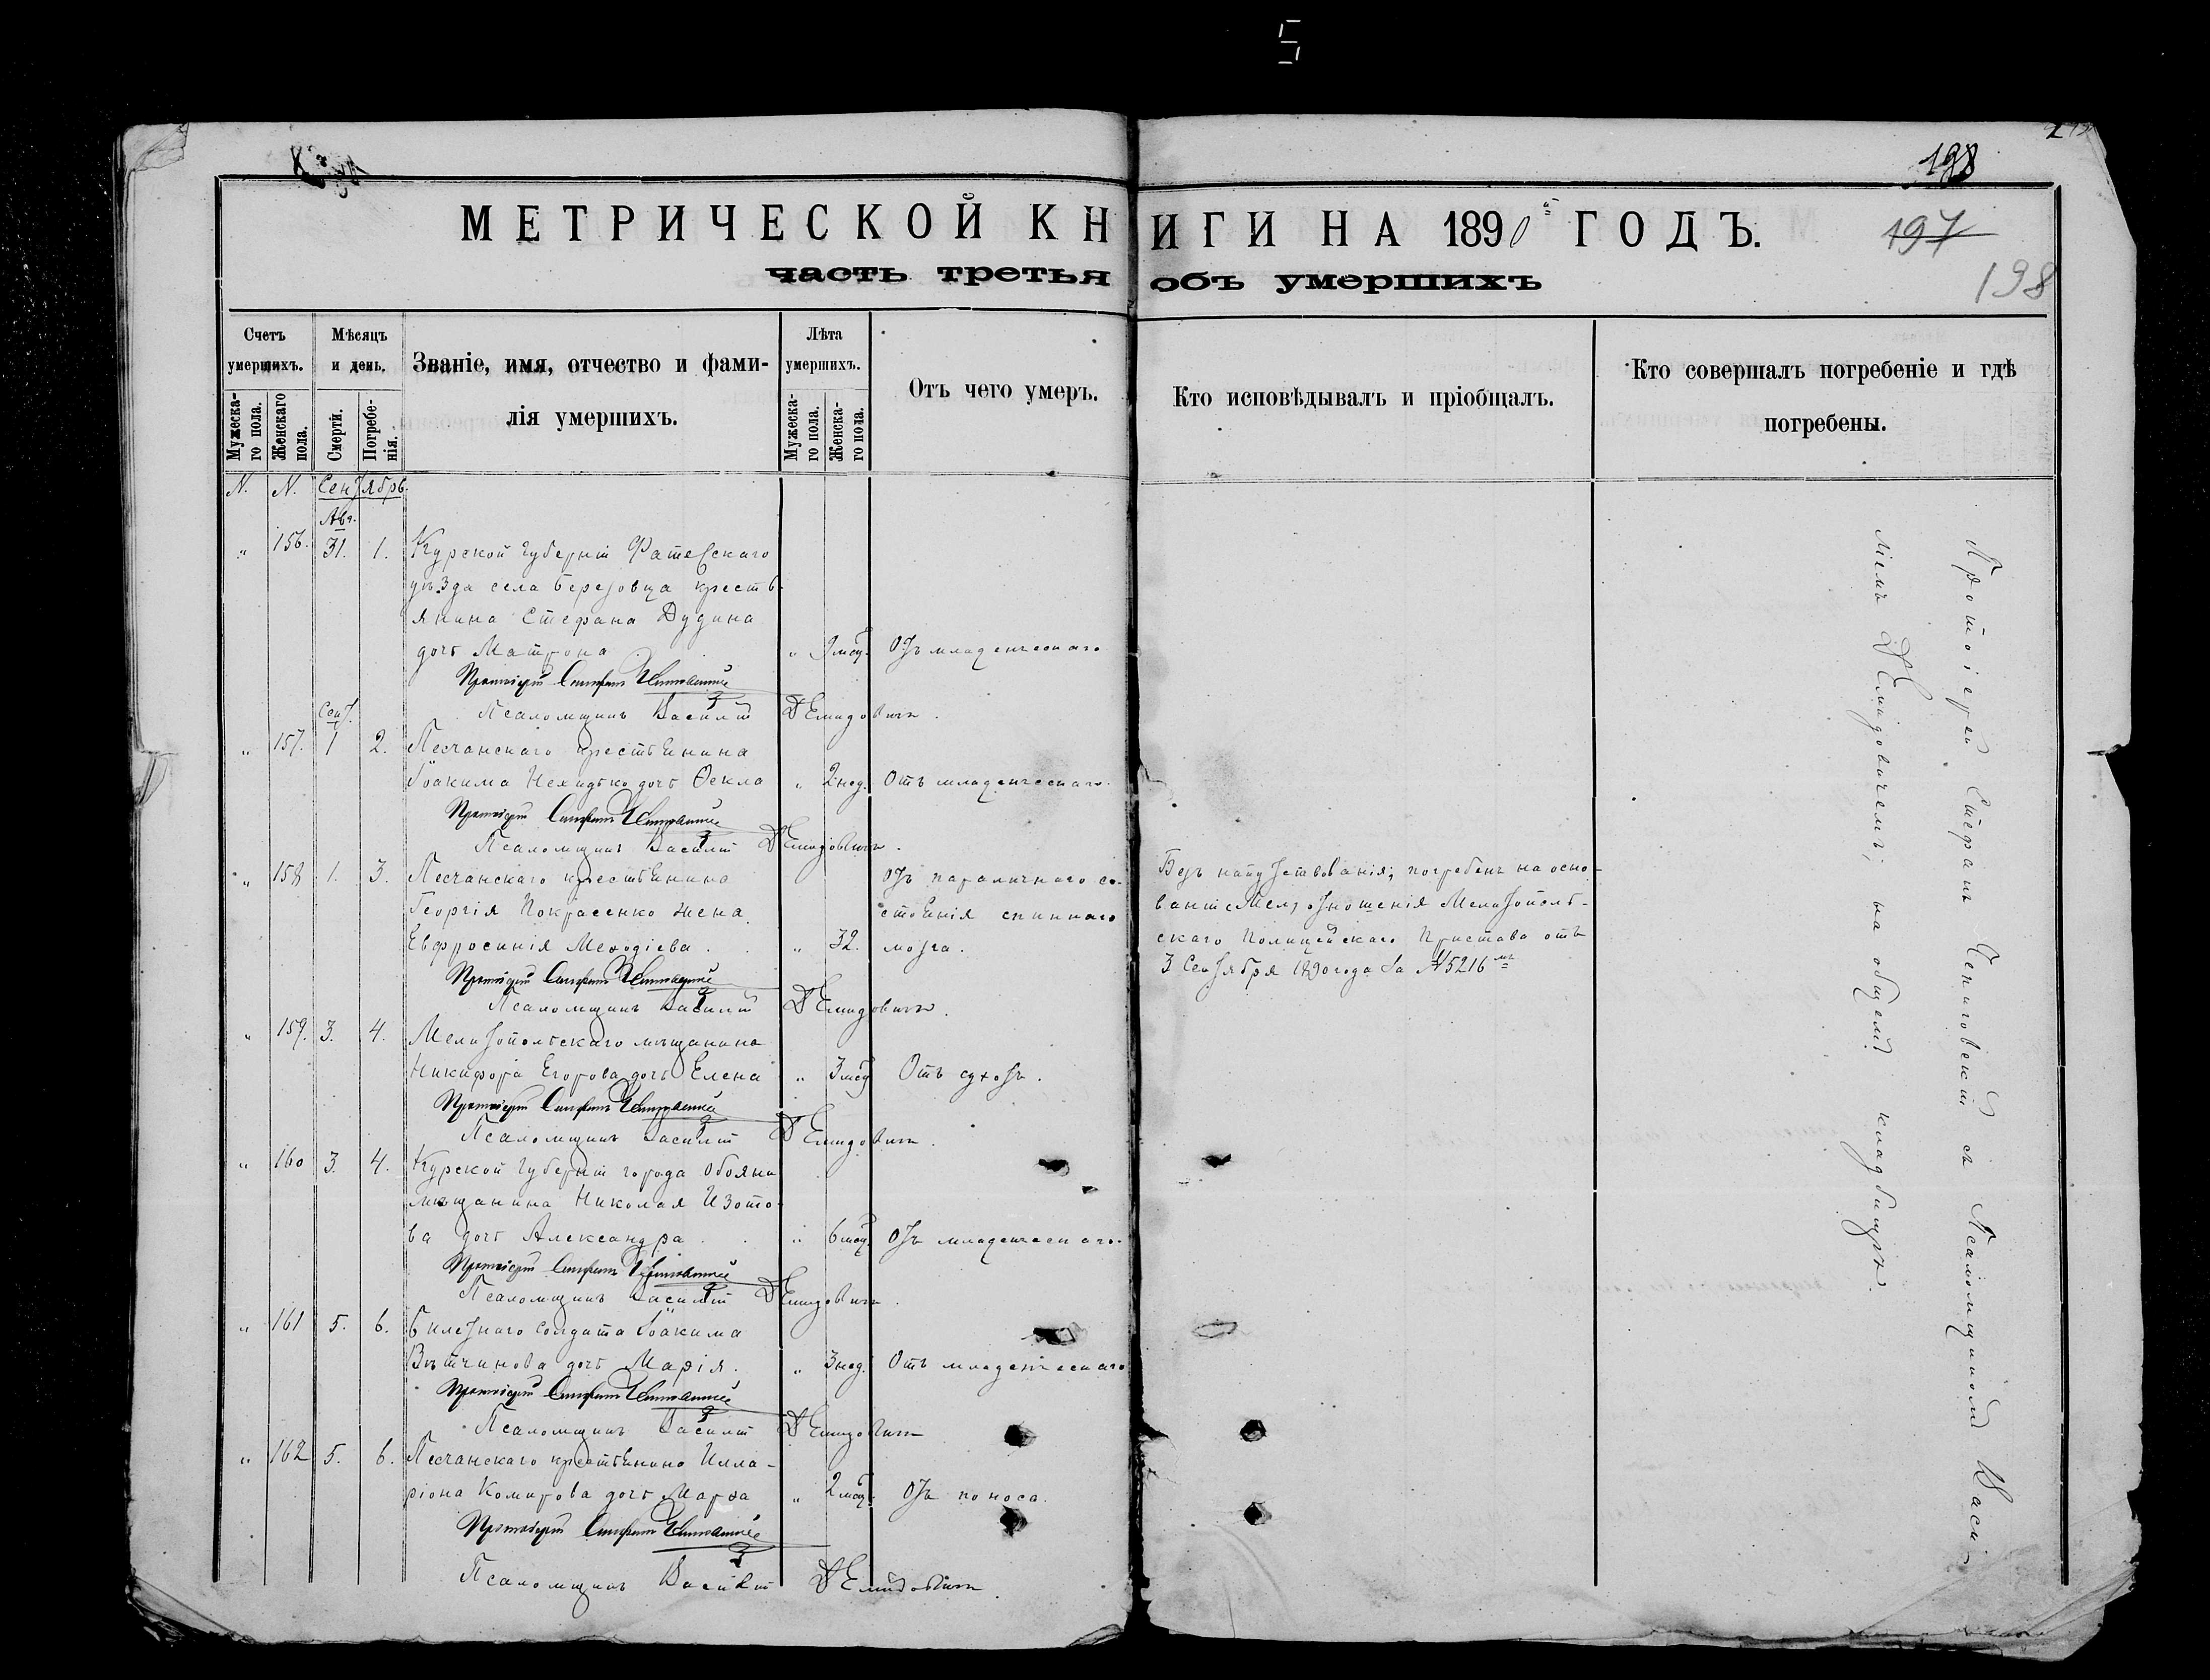 5
198
197
198
МЕТРИЧЕСКОЙ КНИГИ НА 1890й ГОДЪ.
часть третья объ умершихъ
Счетъ умершихъ.
Мужеска-го пола.
Женскаго пола.
Мѣсяцъ и день.
Смерти.
Погребе-нія.
Званіе, имя, отчество и фами-
лія умершихъ.
Лѣта умершихъ.
Мужеска-го пола.
Женска-го пола.
Отъ чего умеръ.
Кто исповѣдывалъ и пріобщалъ.
Кто совершалъ погребеніе и гдѣ
погребены.
N. N. Сентябрь
Авг.
„ 156. 31. 1. Курской губерніи Фатежскаго
уѣзда села Березовца кресть-
янина Стефана Дудина
дочь Матрона „ 9 мѣс. Отъ младенческаго
Протоіерей Стефанъ
Псаломщикъ Василій Демидовичъ.
Сент.
„ 157. 1 2. Песчанскаго крестьянина
Іоакима дочь Ѳекла „ 2 нед. Отъ младенческаго.
Протоіерей Стефанъ
Псаломщикъ Василій Демидовичъ.
„ 158 1. 3. Песчанскаго крестьянина Отъ параличнаго со-
Георгія Покрасенко жена стоянія спиннаго
Евфросинія Меѳодіева. „ 32. мозга.
Безъ напутствованія; погребенъ на осно-
ваніи отношенія Мелитополь-
скаго Полицейскаго Пристава отъ
3 Сентября 1890 года за N 5216мъ
Протоіерей Стефанъ
Псаломщикъ Василій Демидовичъ.
„ 159. 3. 4. Мелитопольскаго мѣщанина
Никифора Егорова дочь Елена „ 3 мѣс Отъ сухотъ.
Протоіерей Стефанъ
Псаломщикъ Василій Демидовичъ.
„ 160 3. 4. Курской губерніи города Обояни
мѣщанина Николая Изото-
ва дочь Александра „ 6 мѣс. Отъ младенческаго.
Протоіерей Стефанъ
Псаломщикъ Василій Демидовичъ.
„ 161 5. 6. Билетнаго солдата Іоакима
Вѣтчинова дочь Марія. „ 3 нед. Отъ младенческаго
Протоіерей Стефанъ
Псаломщикъ Василій Демидовичъ
„ 162 5. 6. Песчанскаго крестьянина Илла-
ріона Комирова дочь Марѳа „ 2 мѣс. Отъ поноса.
Протоіерей Стефанъ
Псаломщикъ Василій Демидовичъ.
Протоіерей Стефанъ съ Псаломщикомъ Васи-
ліемъ Демидовичемъ, на общемъ кладбищѣ.